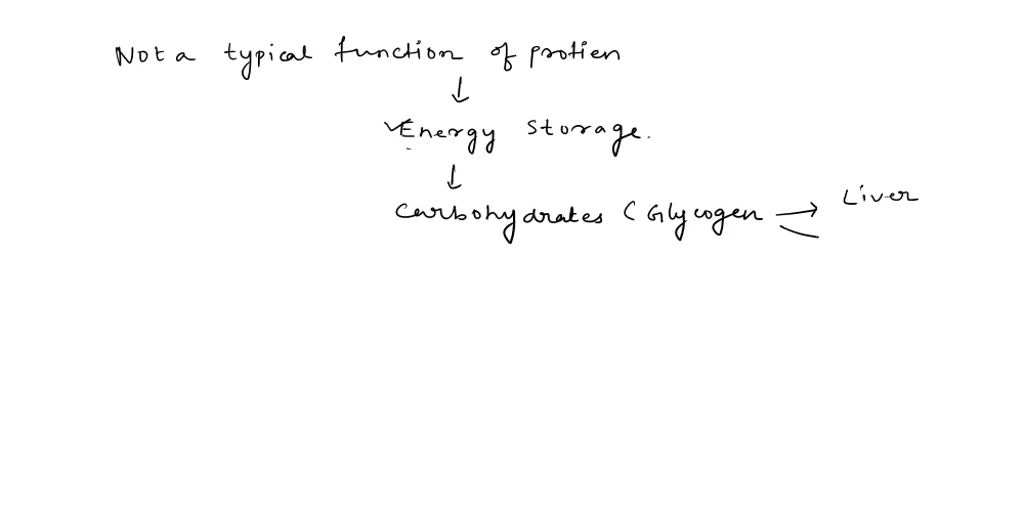 Not a typical function of protien
↓
Energy storage.
↓
Carbohydrates (Glycogen → Liver